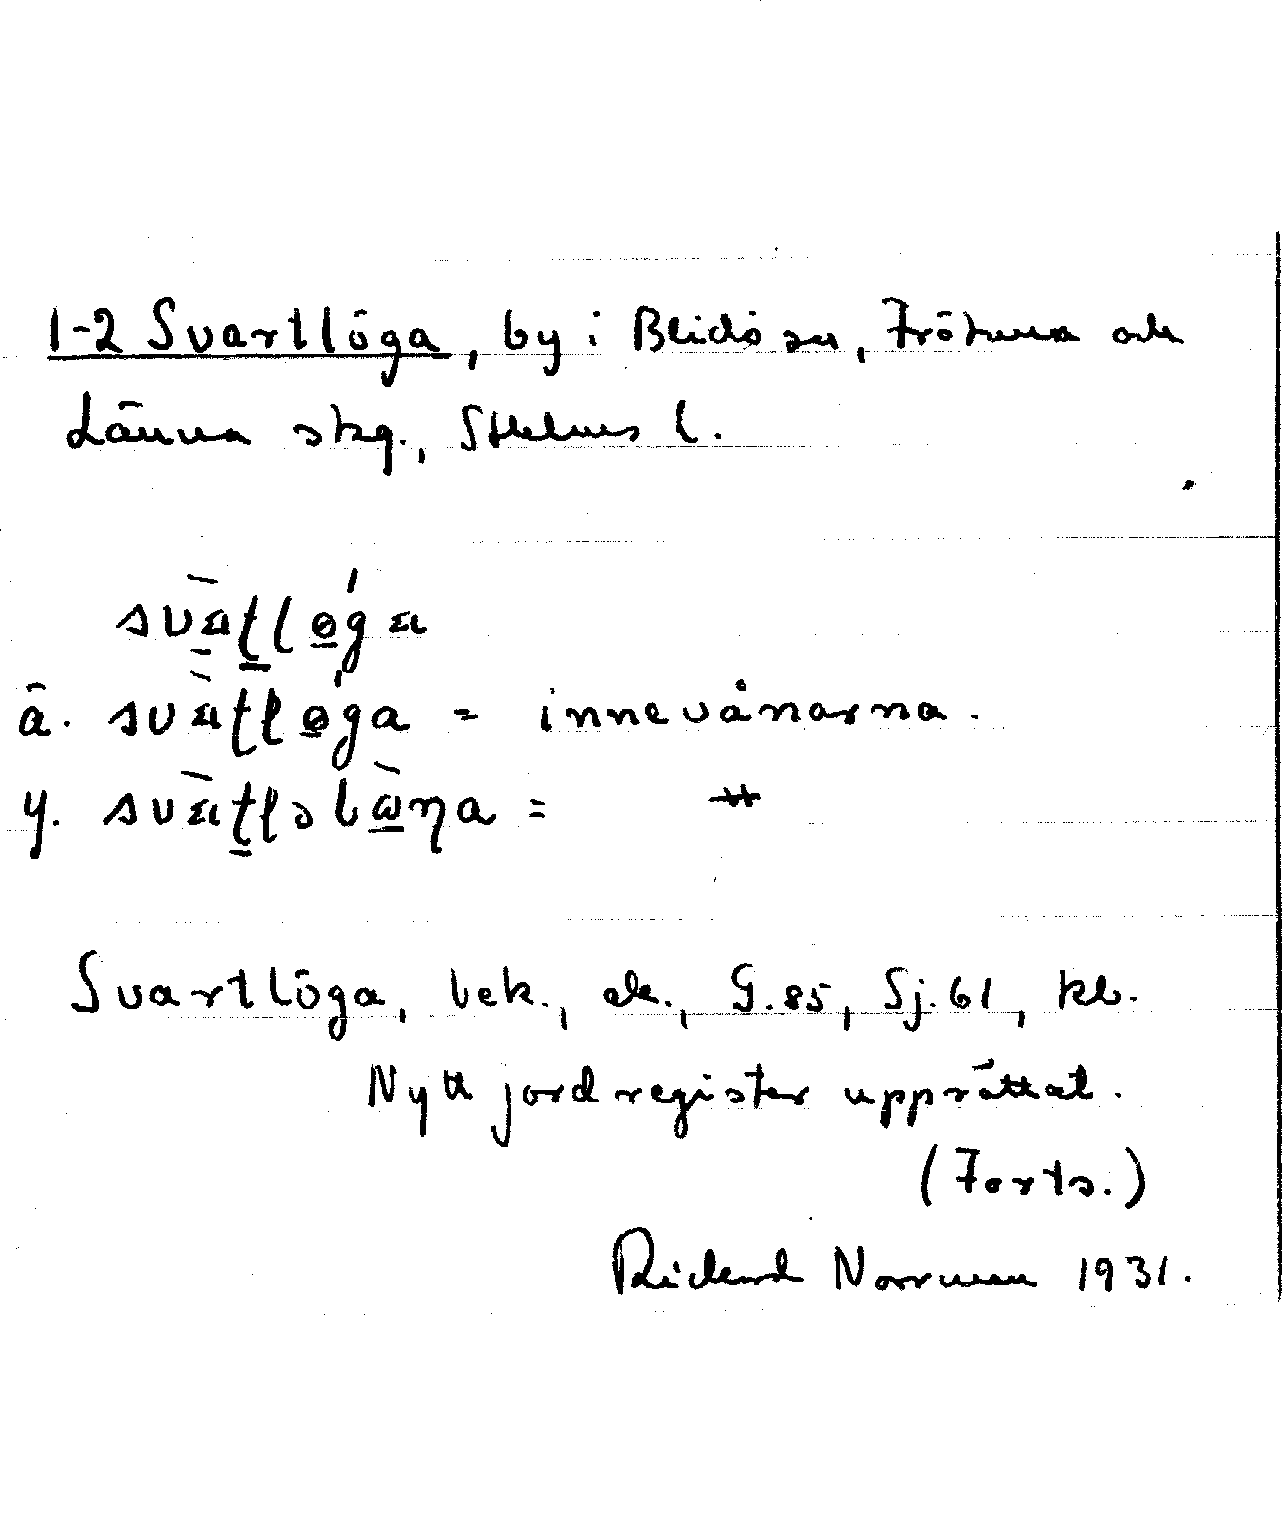 1-2 Svartlöga, by i Blidö sn, Frötuna och
Länna skg., Sthlms l.
svatløga
ä. svatløga = innevånarna.
y. svatləbωηa = -"-
Svartlöga, bek., ek., G.85, Sj.61, kb.
Nytt jordregister upprättat.
(Forts.)
Rickard Norrman 1931.